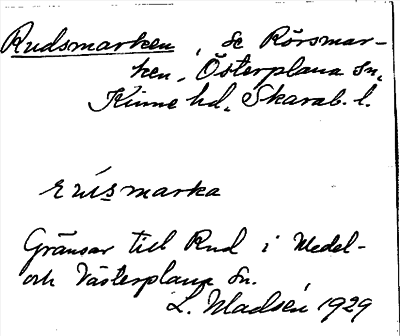 Rudsmarken, se Rörsmar-
ken, Österplana sn,
Kinne hd, Skarab. l.
Gränsar till Rud i Medel-
och Västerplana sn.
L. Madsén 1929